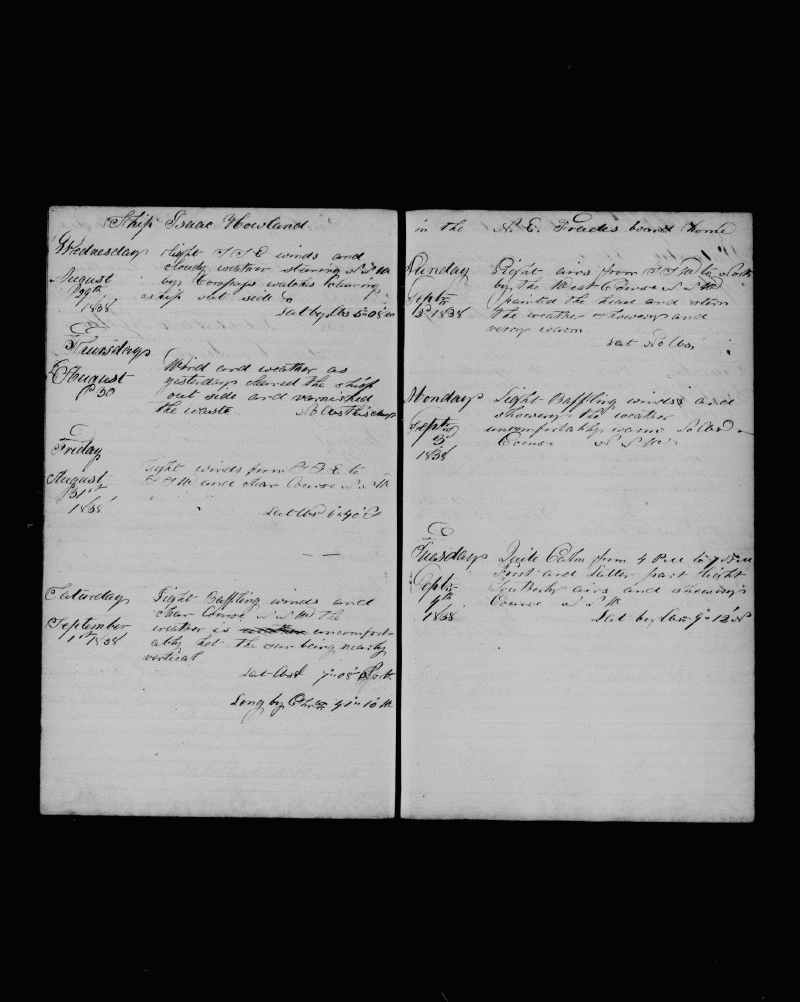 Ship Isaac Howland
Wednesday light S S E winds and
cloudy weather stearing N N W
August by Compass watches
29th ship out side
1838 Lat by Obs 5" 08'
Thursday
August Wind and weather as
30 yesterday cleaned the ship
out side and varnished
the waste No Obs this day
Friday
August Light winds from S S E to
31st S S W and clear Course N N W
1838 Lat Obs 6" 40'
Saturday Light Baffling winds and
clear Course N N W the
September weather is uncomfort-
1st 1838 ably hot the sun being nearly
vertical
Lat Obs 7" 08' North
Long by Chro
in the N. E. Trades bound home
Sunday Light airs from S S W to North
by the West Course N N W
Sept painted the head and stern
2d 1838 the weather showery and
very warm
Lat No Obs
Monday Light Baffling winds and
showery the weather
Sept uncomfortably warm No Obs
3 Course N N W
1838
Tuesday Quite Calm from 4 PM to 7 AM
First and Latter part light
Sept Southerly airs and showery
4th Course N N W
1838 Lat by Obs 9" 12' N